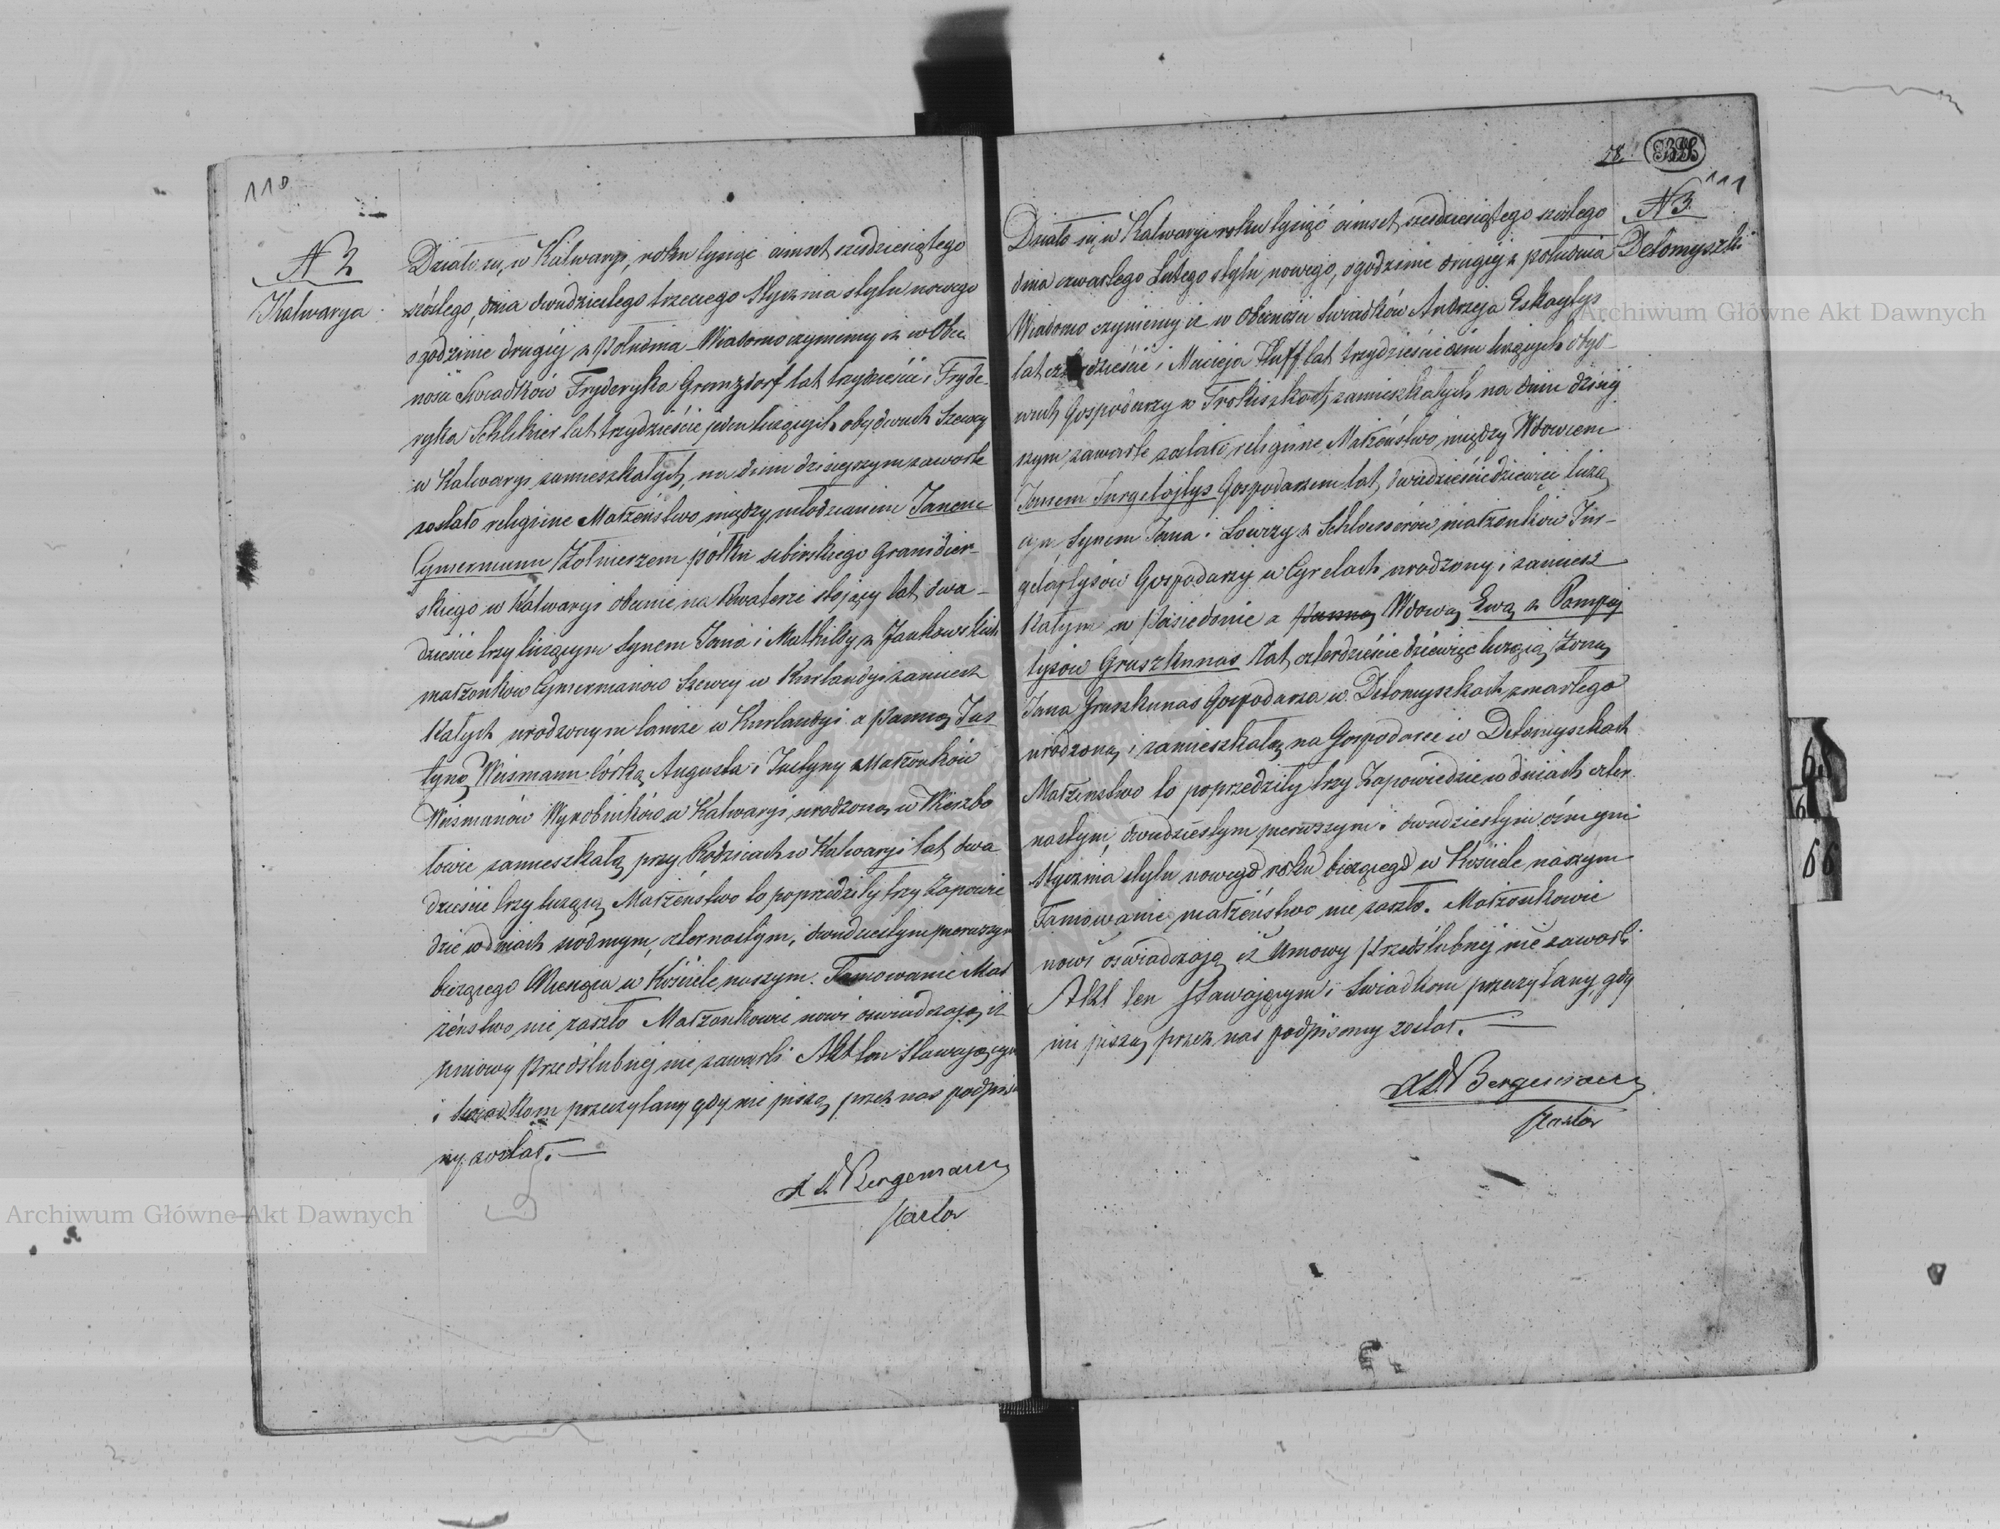 110
N 2
Kalwarya
Działo się w Kalwaryi, roku tysiąc ośmset sześdziesiątego
szóstego, dnia dwudziestego trzeciego Stycznia stylu nowego
o godzinie drugiéj z Południa Wiadomo czyniemy iż w Obec
ności Świadków Fryderyka Gramzdorf lat trzydzieści i Fryde-
ryka Schlikier lat trzydzieście jeden liczących obydwuch Szewcy
w Kalwaryi zamieszkałych, na dniu dzisiejszym zawarte
zostało religijne Małżeństwo między młodzianem Janem
Cymermann Żołnierzem półku Grenadier-
skiego w Kalwaryi obecnie na Kwaterze stojący lat dwa-
dzieście trzy liczącym Synem Jana i Mathildy z Jankowskich
małżonków Cymermanów Szewcy w Kurlandyi zamiesz
kałych urodzonym tamże w Kurlandyi a Panną Jus
tyną Weismann córką Augusta i Justyny Małżonków
Weismanów Wyrobników w Kalwaryi, urodzoną w Wierzbo
łowie zamieszkałą przy Rodzicach w Kalwaryi lat dwa
dzieście trzy liczącą Małżeństwo to poprzedziły trzy Zapowie
dzie w dniach siódmym, czternastym, i dwudziestym pierwszym
bieżącego Miesiąca w Kościele naszym. Tamowanie Mał
żeństwo nie zaszło Małżonkowie nowi oświadczają iż
umowy przedślubnéj nie zawarli Akt ten Stawającym
i Świadkom przeczytany gdy nie piszą przez nas podpisa
ny został.
Bergemann
Pastor
28.
111
N 3.
Detomyszki
Działo się w Kalwaryi roku tysiąc ośmset sześdziesiątego szóstego
dnia czwartego Lutego stylu nowego, o godzinie drugiéj z południa
Wiadomo czyniemy iż w Obecności Świadków Andrzeja Eskaytys
lat czterdzieście i Macieja Huff lat trzydzieście ośm liczących obyd-
wuch Gospodarzy w Trokiszkach zamieszkałych na dniu dzisiej
szym zawarte zostało religijne Małżeństwo między Wdowcem
Janem Jurgelajtys Gospodarzem lat dwadzieście dziewięć liczą
cym Synem Jana i Lowizy z Schlosserów małżonków Jur-
gelajtysów Gospodarzy w Cyrelach urodzony i zamiesz
kałym w Pasiedonie a Panną Wdową Ewą z Pampij
tysów Gruszkunas lat czterdzieście dziewięć liczącą Żoną
Jana Gruszkunas Gospodarza w Detomyszkach zmarłego
urodzoną i zamieszkałą na Gospodarce w Detomyszkach
Małżeństwo to poprzedziły trzy Zapowiedzie w dniach czter-
nastym, dwudziestym pierwszym i dwudziestym ósmym
Stycznia stylu nowego roku bieżącego w Kościele naszym
Tamowanie małżeństwo nie zaszło. Małżonkowie
nowi oświadczają iż Umowy przedślubnéj nie zawarli
Akt ten Stawającym i Świadkom przeczytany, gdy
nie piszą przez nas podpisany został.
Bergemann
Pastor
Archiwum Główne Akt Dawnych
Archiwum Główne Akt Dawnych